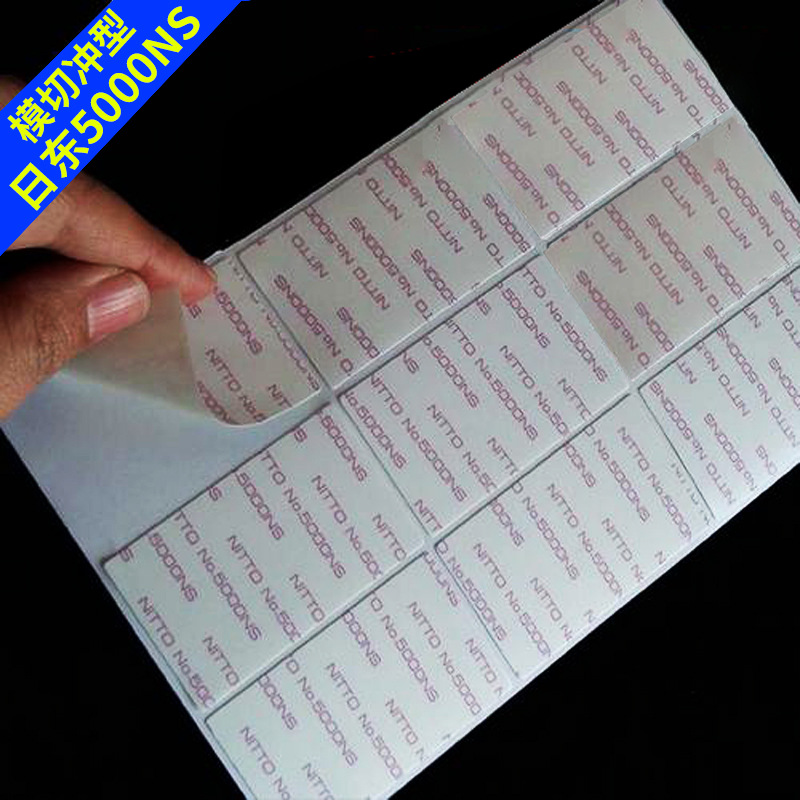 模切冲型
日东5000NS
NITTO No.5000NS
NITTO No.5000NS
NITTO No.5000NS
NITTO No.5000NS
NITTO No.5000NS
NITTO No.5000NS
NITTO No.5000NS
NITTO No.5000NS